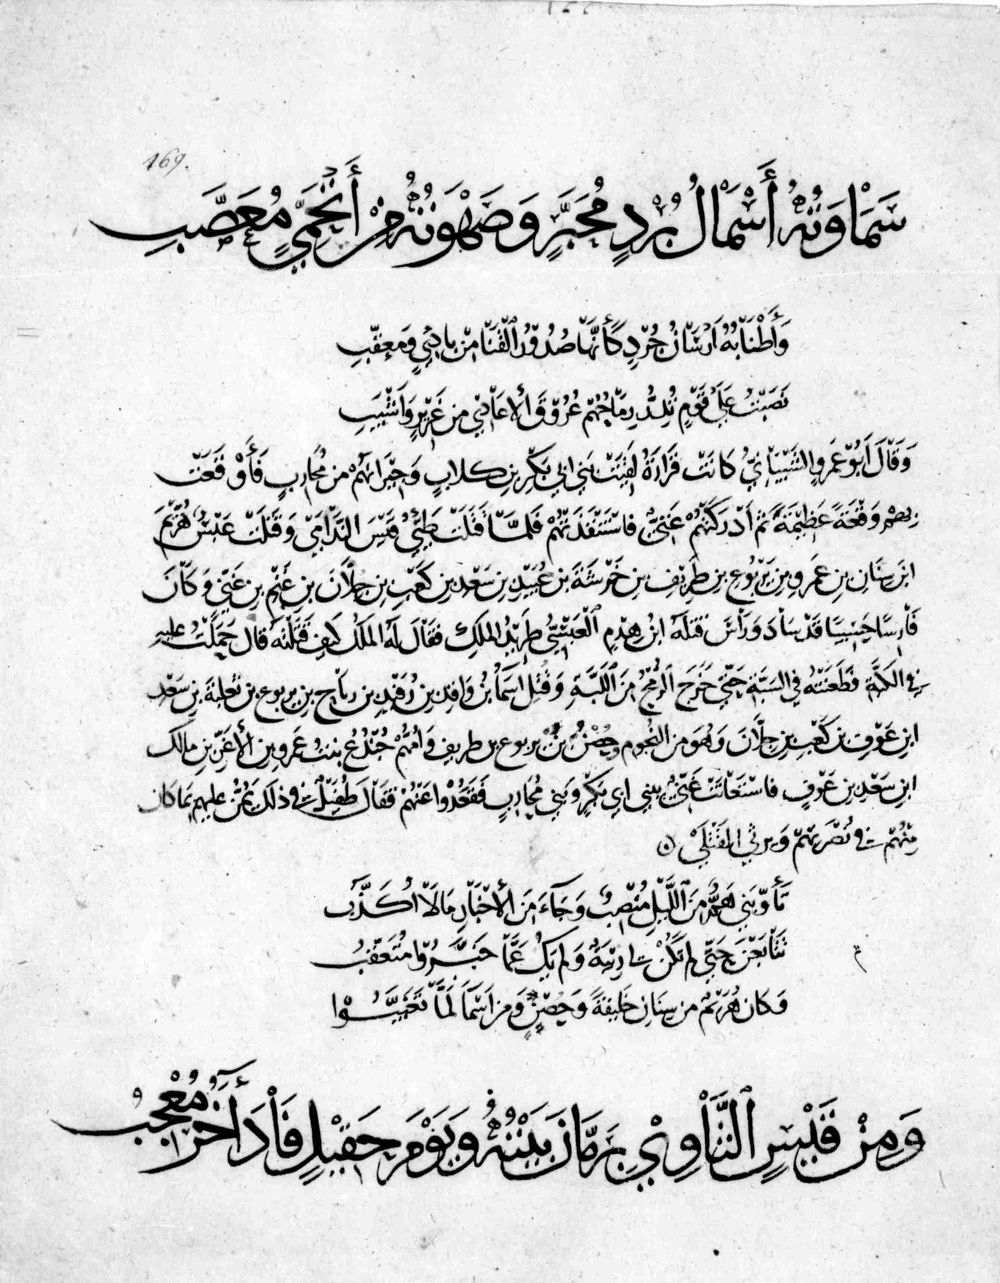 169.
سَمَاوَتُهُ أَسْمَالُ بُرْدٍ مُحَبَّرٍ وَصَهْوَتُهُ مِنْ أَتْحَمِيٍّ مُعَصَّبِ
وَأَطْنَابُهُ أَرْسَانُ جُرْدٍ كَأَنَّهَا صُدُورُ الْقَنَا مِنْ بَادِئٍ وَمُعَقِّبِ
نَصَبْتُ عَلَى قَوْمٍ تُدِرُّ رِمَاحُهُمْ عُرُوقَ الْأَعَادِي مِنْ غَرِيرٍ وَأَشْيَبِ
وَقَالَ أَبُو عَمْرٍو الشَّيْبَانِيُّ كَانَتْ فَزَارَةُ لَقِيَتْ بَنِي أَبِي بَكْرِ بْنِ كِلَابٍ وَجِيرَانَهُمْ مِنْ مُحَارِبٍ فَأَوْقَعَتْ
بِهِمْ وَقْعَةً عَظِيمَةً ثُمَّ أَدْرَكَتْهُمْ غَنِيٌّ فَاسْتَنْقَذَتْهُمْ فَلَمَّا قَتَلَتْ طَيِّئٌ قَيْسَ النَّدَامَى وَقَتَلَتْ عَبْسٌ هُرَيْمَ
ابْنَ سِنَانِ بْنِ عَمْرِو بْنِ يَرْبُوعِ بْنِ طَرِيفِ بْنِ خَرَشَةَ بْنِ عُبَيْدِ بْنِ سَعْدِ بْنِ كَعْبِ بْنِ جِلَّانَ بْنِ غَنْمِ بْنِ غَنِيٍّ وَكَانَ
فَارِسًا حَسِيبًا قَدْ سَادَ وَرَأَسَ قَتَلَهُ ابْنُ هِدْمٍ الْعَبْسِيُّ طَرِيدُ الْمَلِكِ فَقَالَ لَهُ الْمَلِكُ كَيْفَ قَتَلْتَهُ قَالَ حَمَلْتُ عَلَيْهِ
فِي الْكَبَّةِ وَطَعَنْتُهُ فِي السَّبَّةِ حَتَّى خَرَجَ الرُّمْحُ مِنَ اللَّبَّةِ وَقُتِلَ أَسْمَاءُ بْنُ وَاقِدِ بْنِ رُفَيْدِ بْنِ رِيَاحِ بْنِ يَرْبُوعِ بْنِ ثَعْلَبَةَ بْنِ سَعْدِ
ابْنِ عَوْفِ بْنِ كَعْبِ بْنِ جِلَّانَ وَهُوَ مِنَ النُّجُومِ وَحِصْنُ بْنُ يَرْبُوعِ بْنِ طَرِيفٍ وَأُمُّهُمْ جُنْدُعُ بِنْتُ عَمْرِو بْنِ الْأَغَرِّ بْنِ مَالِكِ
ابْنِ سَعْدِ بْنِ عَوْفٍ فَاسْتَغَاثَتْ غَنِيٌّ بِبَنِي أَبِي بَكْرٍ وَبَنِي مُحَارِبٍ فَقَعَدُوا عَنْهُمْ فَقَالَ طُفَيْلٌ فِي ذٰلِكَ يَمُنُّ عَلَيْهِمْ بِمَا كَانَ
مِنْهُمْ فِي نُصْرَتِهِمْ وَيَرْثِي الْقَتْلَى
تَأَوَّبَنِي هَمٌّ مِنَ اللَّيْلِ مُنْصِبُ وَجَاءَ مِنَ الْأَخْبَارِ مَا لَا أُكَذِّبُ
تَتَابَعْنَ حَتَّى لَمْ تَكُنْ لِي رِيبَةٌ وَلَمْ يَكُ عَمَّا خَبَّرُوا مُتَعَقَّبُ
وَكَانَ هُرَيْمٌ مِنْ سِنَانٍ خَلِيفَةً وَحِصْنٍ وَمِنْ أَسْمَاءَ لَمَّا تَغَيَّبُوا
وَمِنْ قَيْسٍ الثَّاوِي بِرَمَّانَ بَيْتُهُ وَيَوْمَ حَقِيلٍ فَادَ آخَرُ مُعْجِبُ